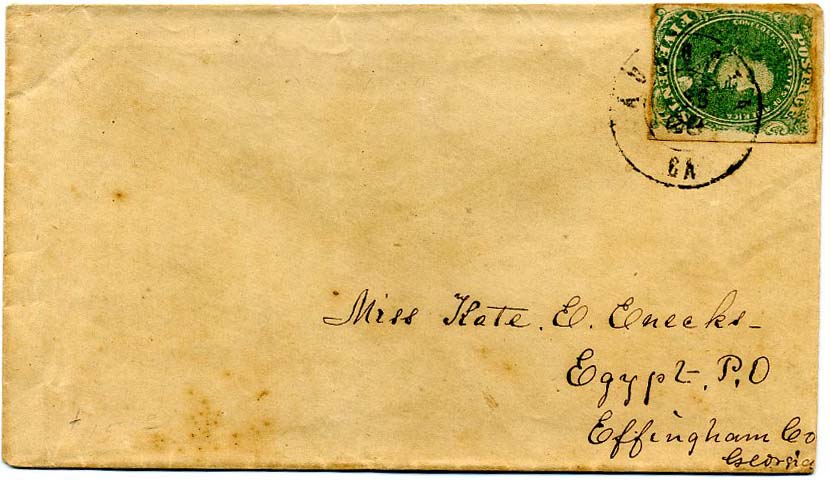 FIVE CENTS
POSTAGE
CONFEDERATE STATES OF AMERICA
GA
Miss Kate. E. Enecks-
Egypt, P.O
Effingham Co
Georgia